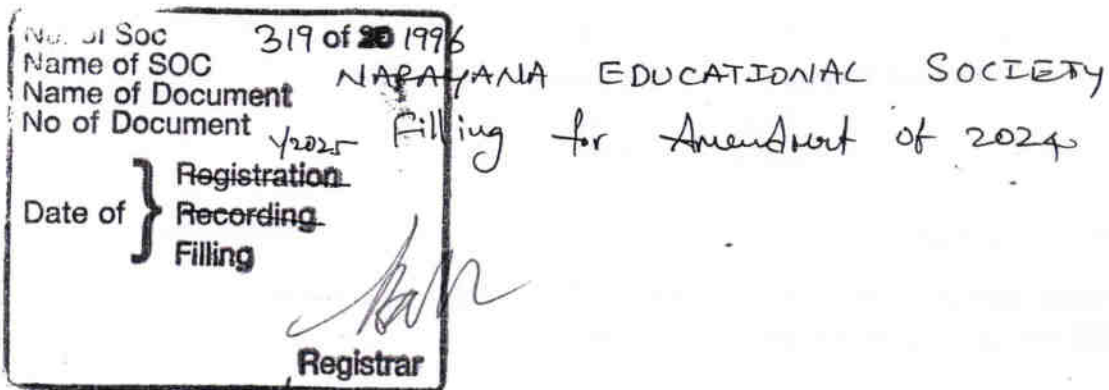 No. of Soc 319 of 20 1996
Name of SOC NARAYANA EDUCATIONAL SOCIETY
Name of Document Filling for Amendment of 2024
No of Document 1/2025
Registration
Date of } Recording
Filling
Registrar